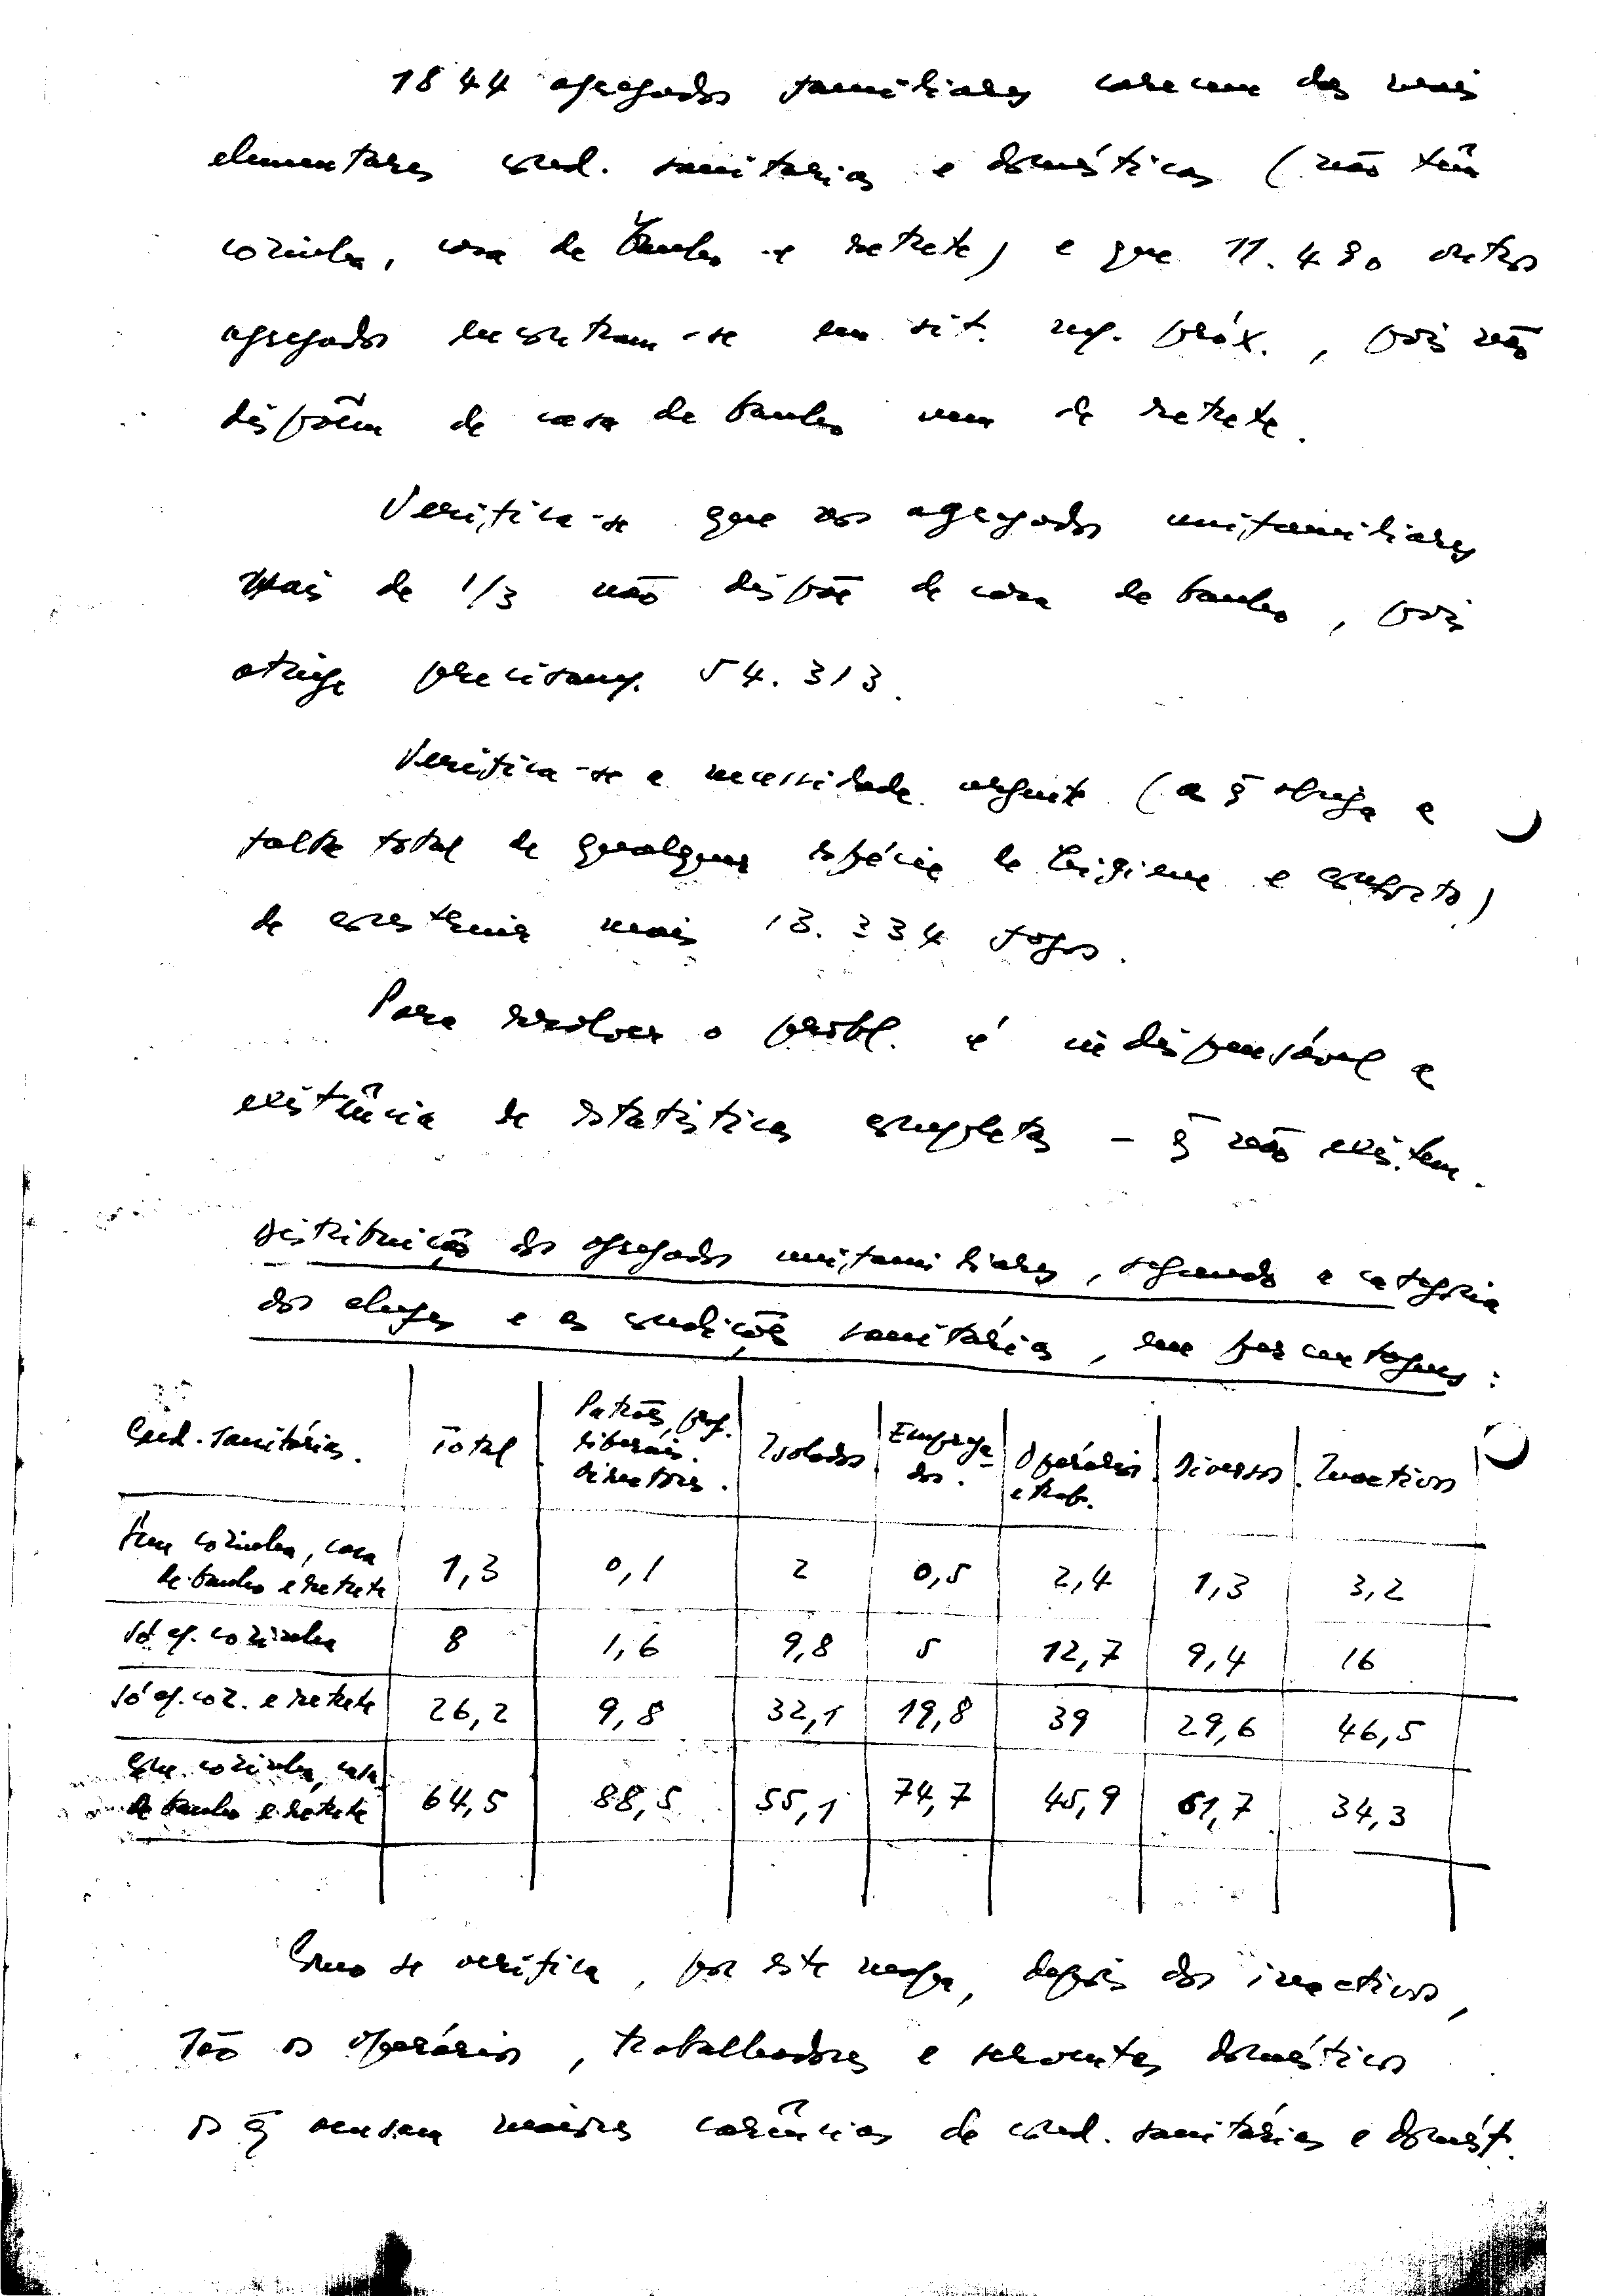 1844 agregados familiares carecem das mais
elementares cond. sanitarias e domésticas (não têm
cozinha, casa de banho e retrete) e que 11.480 outros
agregados encontram-se em sit. mp. próx., pois não
dispõem de casa de banho nem de retrete.
Verifica-se que nos agregados unifamiliares
mais de 1/3 não dispõe de casa de banho, pois
atinge precisamp. 54.313.
Verifica-se a necessidade urgente (a q̄ obriga a
falta total de qualquer espécie de higiene e conforto)
de construir mais 13.334 fogos.
Para resolver o probl. é indispensável a
existência de estatísticas completas - q̄ não existem.
Distribuição dos agregados unifamiliares, segundo a categoria
dos chefes e as condições sanitárias, em percentagens:
Cond. sanitárias. Total Patrões, prof. liberais. directores. Isolados Emprega-dos. Operários e trab. Diversos Inactivos
Sem cozinha, casa
de banho e retrete 1,3 0,1 2 0,5 2,4 1,3 3,2
Só c/. cozinha 8 1,6 9,8 5 12,7 9,4 16
Só c/. coz. e retrete 26,2 9,8 32,1 19,8 39 29,6 46,5
Com cozinha, casa
de banho e retrete 64,5 88,5 55,1 74,7 45,9 61,7 34,3
Como se verifica, por este mapa, depois dos inactivos,
são os operários, trabalhadores e serventes domésticos
os q̄ acusam maiores carências de cond. sanitárias e domést.